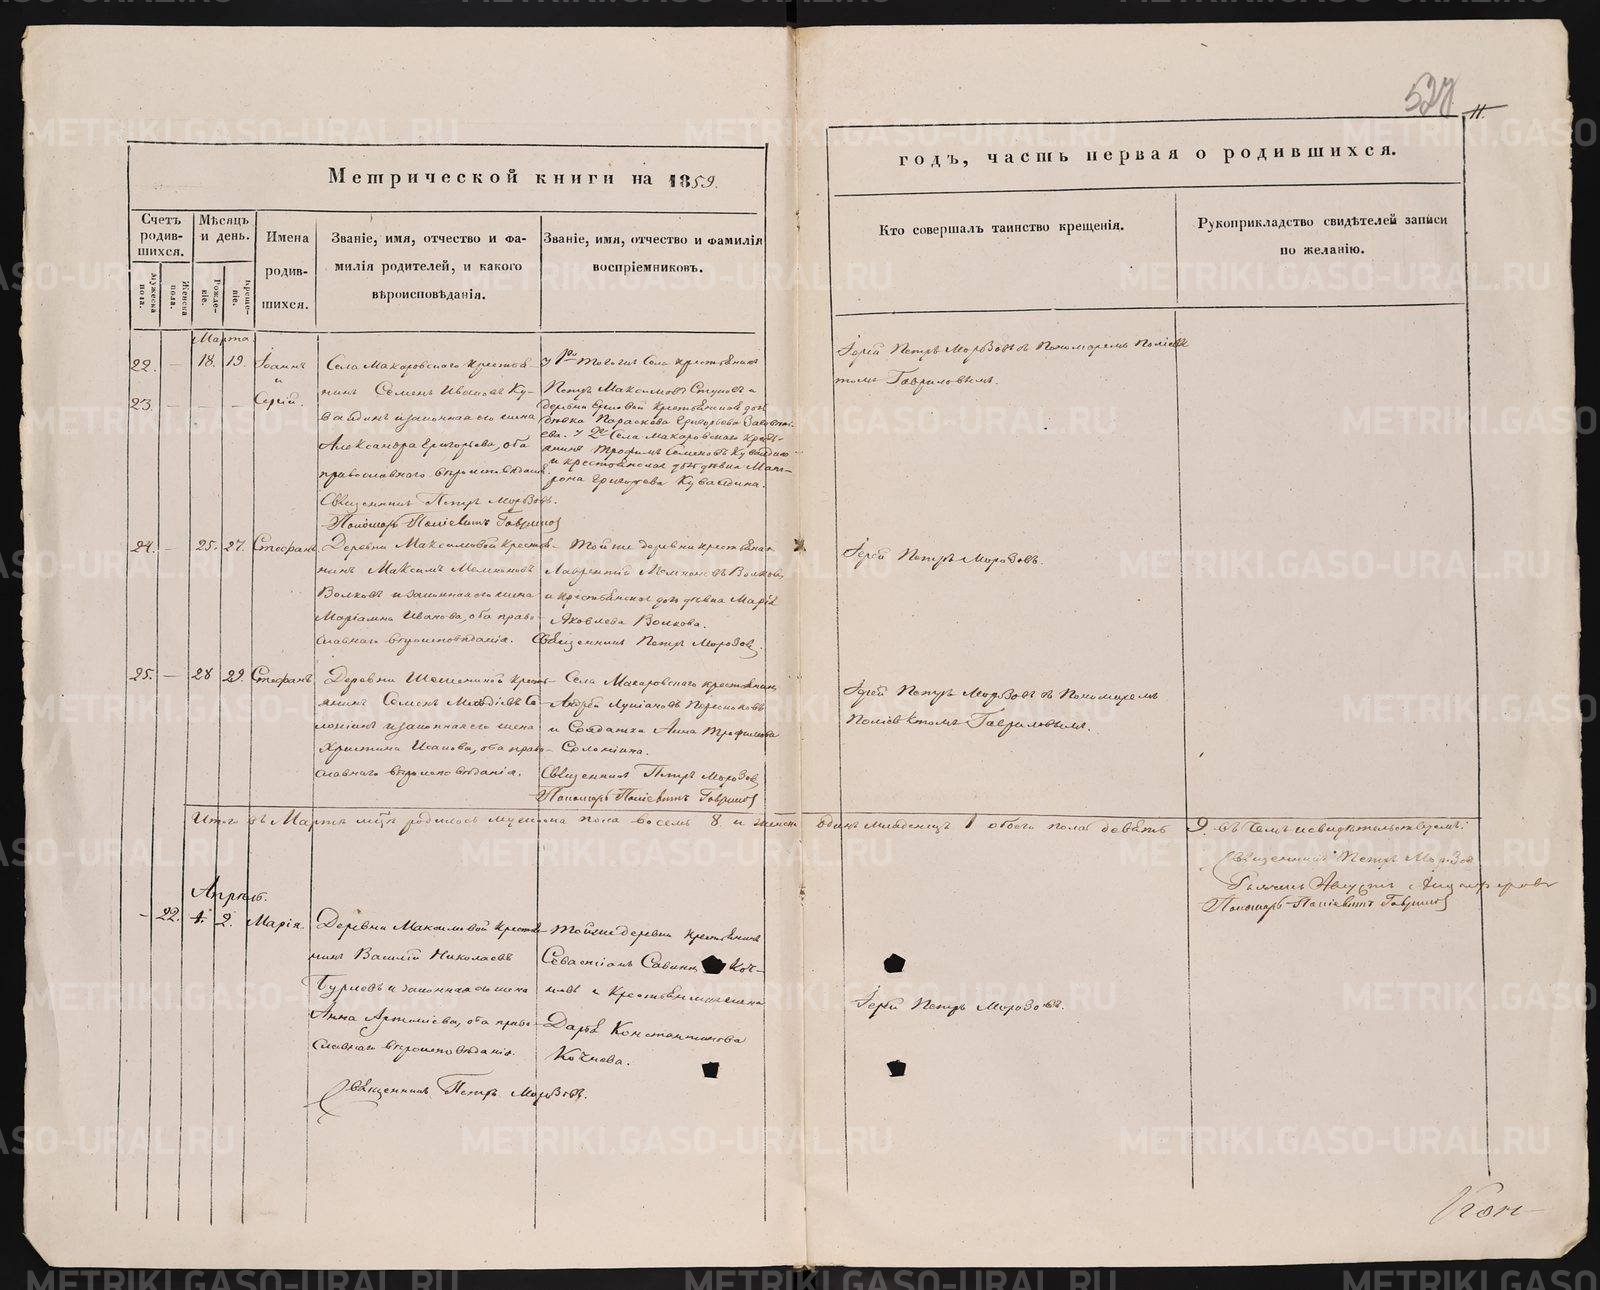 527
11.
Метрической книги на 1859.
годъ, часть первая о родившихся.
Счетъ родившихся.
Мужеска пола.
Женска пола.
Мѣсяцъ и день.
Рожденіе.
Крещеніе.
Имена родившихся.
Званіе, имя, отчество и фамилія родителей, и какого вѣроисповѣданія.
Званіе, имя, отчество и фамилія воспріемниковъ.
Кто совершалъ таинство крещенія.
Рукоприкладство свидѣтелей записи по желанію.
Марта
22. — 18. 19. Іоаннъ
и
23. — — — Сергій.
Села Макаровскаго крестья-
нинъ Семенъ Ивановъ Ку-
валдинъ и законная его жена
Александра Григорьева, оба
православнаго вѣроисповѣданія.
Священникъ Петръ Морозовъ.
Пономарь Поліевктъ Гавриловъ
у 1го тогоже села крестьянинъ
Петръ Максимовъ
деревни крестьянская дочь
дѣвка Параскова Григорьева
у 2го села Макаровскаго кресть-
янинъ Трофимъ Семеновъ Кувалдинъ
и крестьянская дочь дѣвка Мат-
рона Григорьева Кувалдина.
Іерей Петръ Морозовъ съ Пономаремъ Поліевк
томъ Гавриловымъ.
24. — 25. 27. Стефанъ
Деревни Максимовой крестья-
нинъ Максимъ Мемноновъ
Волковъ и законная его жена
Маріамна Иванова, оба право-
славнаго вѣроисповѣданія.
Тойже деревни крестьянинъ
Лаврентій Мемноновъ Волковъ
и крестьянская дочь дѣвка Марія
Яковлева Волкова.
Священникъ Петръ Морозовъ.
Іерей Петръ Морозовъ.
25. — 28 29. Стефанъ
Деревни крестья-
янинъ Семенъ Со-
лонинъ и законная его жена
Христина Исакова, оба право-
славнаго вѣроисповѣданія.
Села Макаровскаго крестьянинъ
Андрей
и Солдатка Анна Трофимова
Солонина.
Священникъ Петръ Морозовъ
Пономарь Поліевктъ Гавриловъ
Іерей Петръ Морозовъ съ Пономаремъ
Поліевктомъ Гавриловымъ.
Итого въ Мартѣ мцѣ родилось мужеска пола восемь 8 и женска одинъ младенецъ 1 обоего пола девять 9. въ семъ свидѣтельствуемъ:
Священникъ Петръ Морозовъ
Пономарь Поліевктъ Гавриловъ
Апрѣль.
— 22. 1. 2. Марія.
Деревни Максимовой крестья-
нинъ Василій Николаевъ
и законная его жена
Анна оба право-
славнаго вѣроисповѣданія.
Священникъ Петръ Морозовъ.
Тойже деревни крестьянинъ
Севастіанъ Савинъ Коч-
невъ и крестьянская жена
Дарья Константинова
Кочнева.
Іерей Петръ Морозовъ.
METRIKI.GASO-URAL.RU